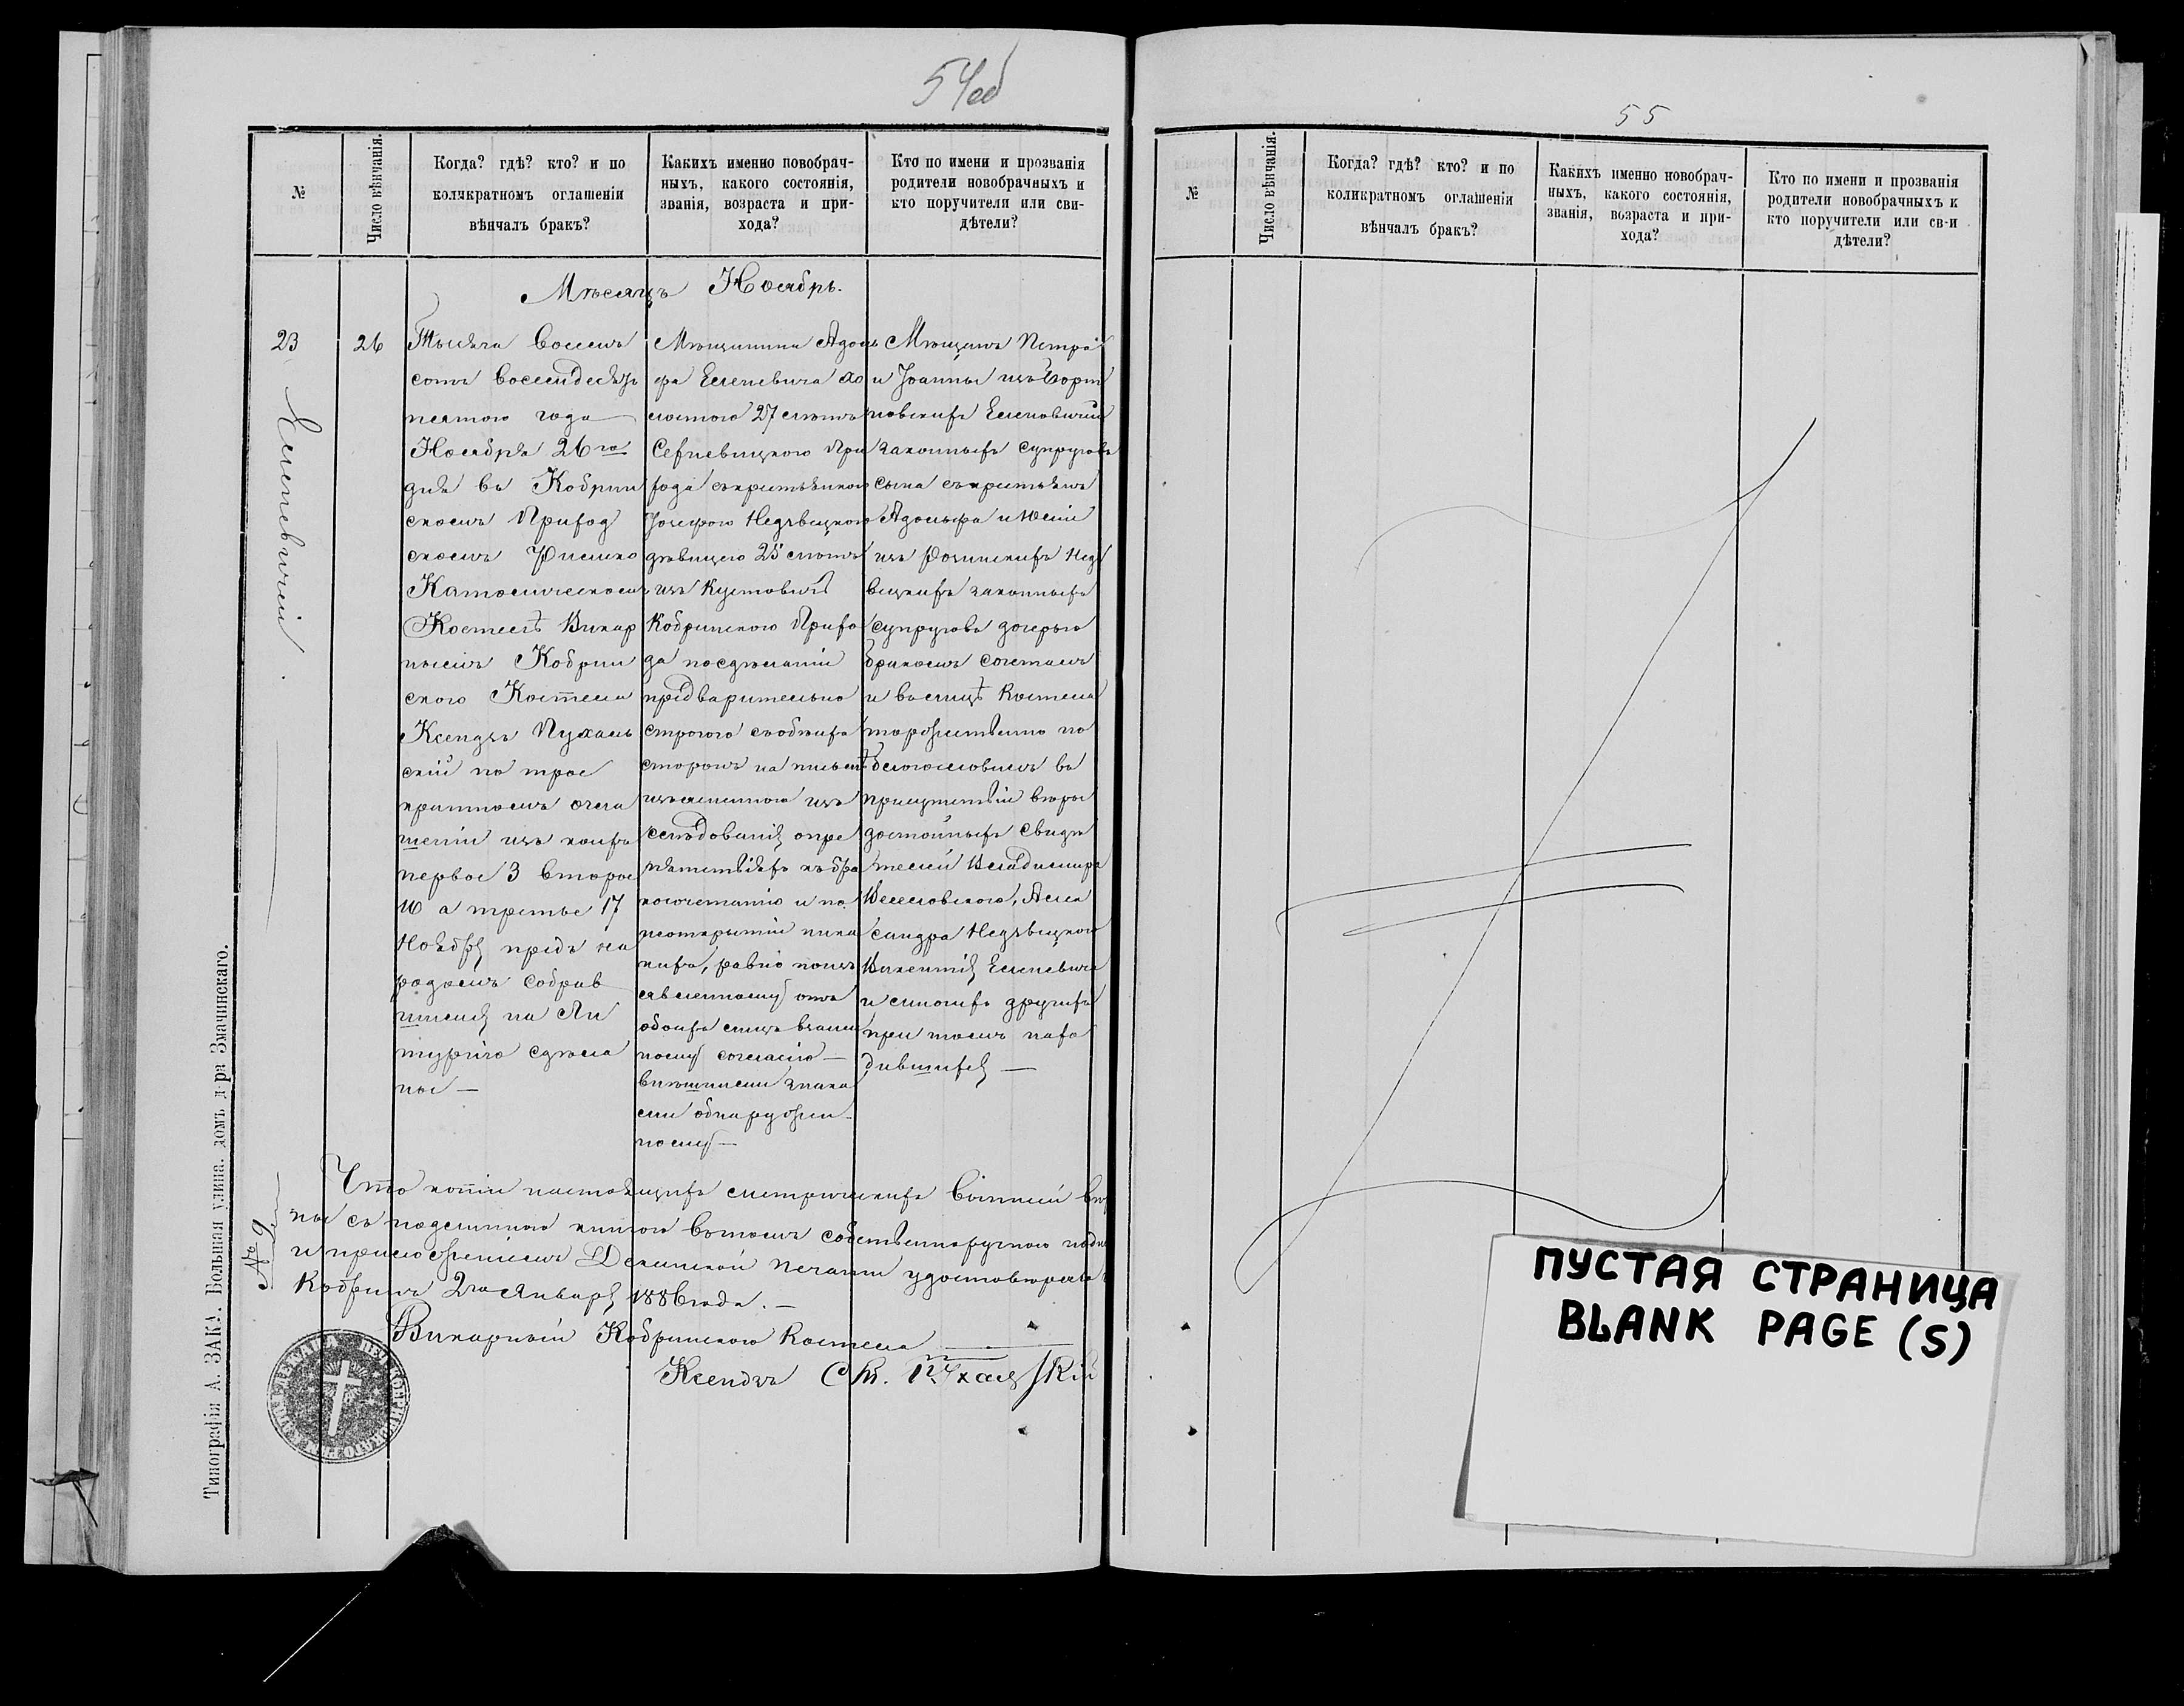 54об
№
Число вѣнчанія.
Когда? гдѣ? кто? и по
коликратномъ оглашеніи
вѣнчалъ бракъ?
Какихъ именно новобрач-
ныхъ, какого состоянія,
званія, возраста и при-
хода?
Кто по имени и прозванія
родители новобрачныхъ и
кто поручители или сви-
дѣтели?
Мѣсяцъ Ноябрь.
23
Есиневичій
26
Тысяча восемь
сотъ восемдесятъ
пятого года
Ноября 26го
дня въ Кобрин
скомъ Приход
скомъ Римско
Католическомъ
Костелѣ Викар
нымъ Кобрин
скаго Костела
Ксендзъ Пухаль
скій по трое
кратномъ огла
шеніи изъ коихъ
первое 3 второе
10 а третье 17
Ноября предъ на
родомъ собрав
шимся на Ли
тургію сдѣла
ны —
Мѣщанина Адоль
фа Есиневича хо
лостого 27 лѣтъ
Сехневицкого При
хода съкрестьянкою
Іозефою Недзвѣцкою
дѣвицею 25 лѣтъ
изъ Кустовичъ
Кобринского Прихо
да посдѣланіи
предварительно
строгого съобоихъ
сторонъ на письмѣ
изъясненного изъ
слѣдованія опре
пятствіяхъ къбра
косочетанію и по
неоткрытіи ника
кихъ, равно поизъ
явленному отъ
обоихъ лицъ взаим
ному согласію —
внѣшними знака
ми обнаружен-
ному —
Мѣщанъ Петра
и Іоанны
Есиновичей
законныхъ Супруговъ
сына съкрестьянъ
Адольфа и Юліи
изъ Недз
вѣцкихъ законныхъ
супруговъ дочерью
бракомъ сочеталъ
и влицѣ Костела
торжественно по
благословилъ въ
присутствіи вѣро
достойныхъ свидѣ
телей Владимира
Веселовского, Алек
сандра Недзвѣцкого
Викентія Есиневича
и многихъ другихъ
при томъ нахо
дившихся —
№ 9
Что копіи настоящихъ метрическихъ вѣр
ны съ подлинною книгою вътомъ собственноручною
и приложеніемъ Деканской печати удостовѣряю
Кобринъ 2го Января 1886 года. —
Викарный Кобринского Костела
Ксендзъ Ст. Пухальскій
Типографія А. ЗАКА. Большая улица. домъ д-ра Змачинскаго.
55
№
Число вѣнчанія.
Когда? гдѣ? кто? и по
коликратномъ оглашеніи
вѣнчалъ бракъ?
Какихъ именно новобрач-
ныхъ, какого состоянія,
званія, возраста и при-
хода?
Кто по имени и прозванія
родители новобрачныхъ и
кто поручители или св-и
дѣтели?
ПУСТАЯ СТРАНИЦА
BLANK PAGE (S)